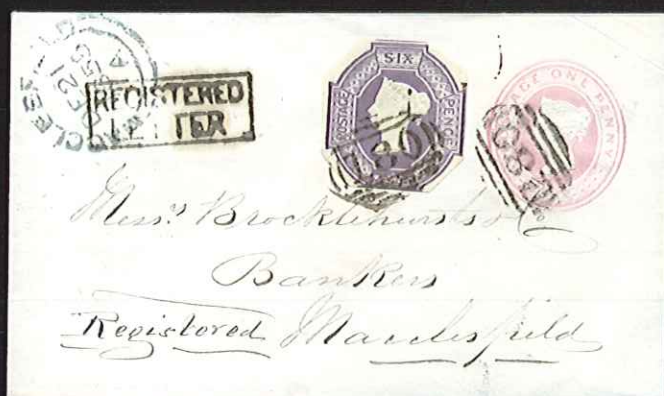 REGISTERED
LETTER
SIX
POSTAGE
PENCE
ONE PENNY
Messrs Brocklehursts & Co
Bankers
Registered Macclesfield